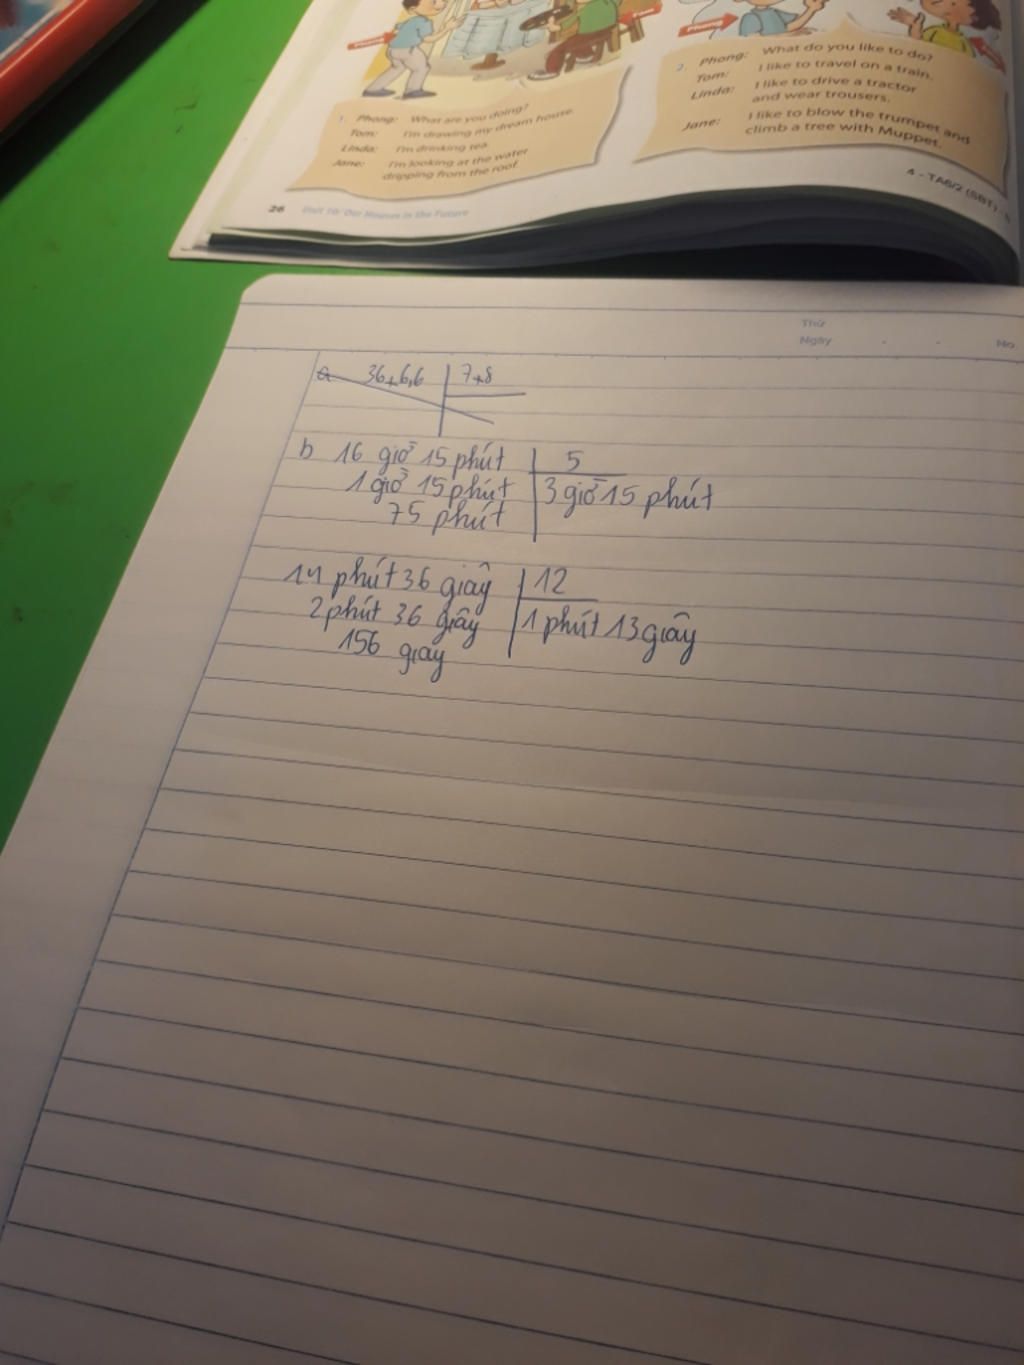 1. Phong: What are you doing?
Tom: I'm drawing my dream house.
Linda: I'm drinking tea.
Jane: I'm looking at the water
dripping from the roof.
2. Phong: What do you like to do?
Tom: I like to travel on a train.
Linda: I like to drive a tractor
and wear trousers.
Jane: I like to blow the trumpet and
climb a tree with Muppet.
26 Unit 10: Our Houses in the Future
4 - TA6/2 (SBT) -
Thứ
Ngày
No.
b 16 giờ 15 phút 5
1 giờ 15 phút 3 giờ 15 phút
75 phút
14 phút 36 giây 12
2 phút 36 giây 1 phút 13 giây
156 giây